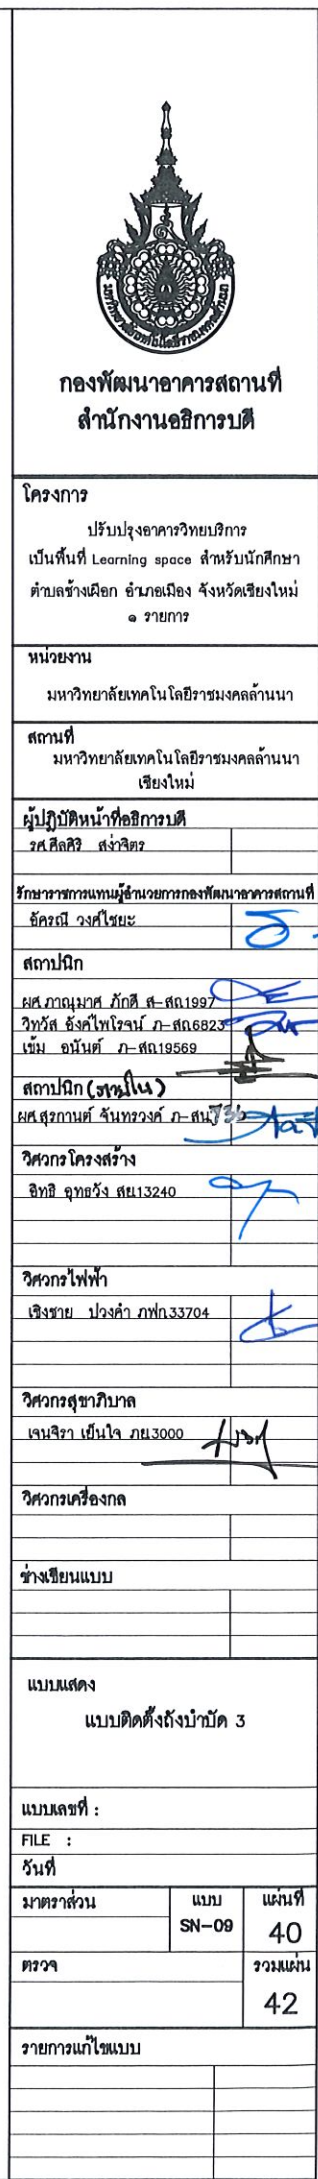 กองพัฒนาอาคารสถานที่
สำนักงานอธิการบดี
โครงการ
ปรับปรุงอาคารวิทยบริการ
เป็นพื้นที่ Learning space สำหรับนักศึกษา
ตำบลช้างเผือก อำเภอเมือง จังหวัดเชียงใหม่
๑ รายการ
หน่วยงาน
มหาวิทยาลัยเทคโนโลยีราชมงคลล้านนา
สถานที่
มหาวิทยาลัยเทคโนโลยีราชมงคลล้านนา
เชียงใหม่
ผู้ปฏิบัติหน้าที่อธิการบดี
รศ.ศีลศิริ สง่าจิตร
รักษาราชการแทนผู้อำนวยการกองพัฒนาอาคารสถานที่
อัครณี วงศ์ไชยะ
สถาปนิก
ผศ.ภาณุมาศ ภักดี ส-สถ1997
วิทวัส อังค์ไพโรจน์ ภ-สถ.6823
เข้ม อนันต์ ภ-สถ.19569
สถาปนิก (ภายใน)
ผศ.สุรกานต์ จันทรวงค์ ภ-สน
วิศวกรโครงสร้าง
อิทธิ อุทธวัง สย.13240
วิศวกรไฟฟ้า
เชิงชาย ปวงคำ ภฟก.33704
วิศวกรสุขาภิบาล
เจนจิรา เย็นใจ ภย.3000
วิศวกรเครื่องกล
ช่างเขียนแบบ
แบบแสดง
แบบติดตั้งถังบำบัด 3
แบบเลขที่ :
FILE :
วันที่
มาตราส่วน แบบ แผ่นที่
SN-09 40
ตรวจ รวมแผ่น
42
รายการแก้ไขแบบ